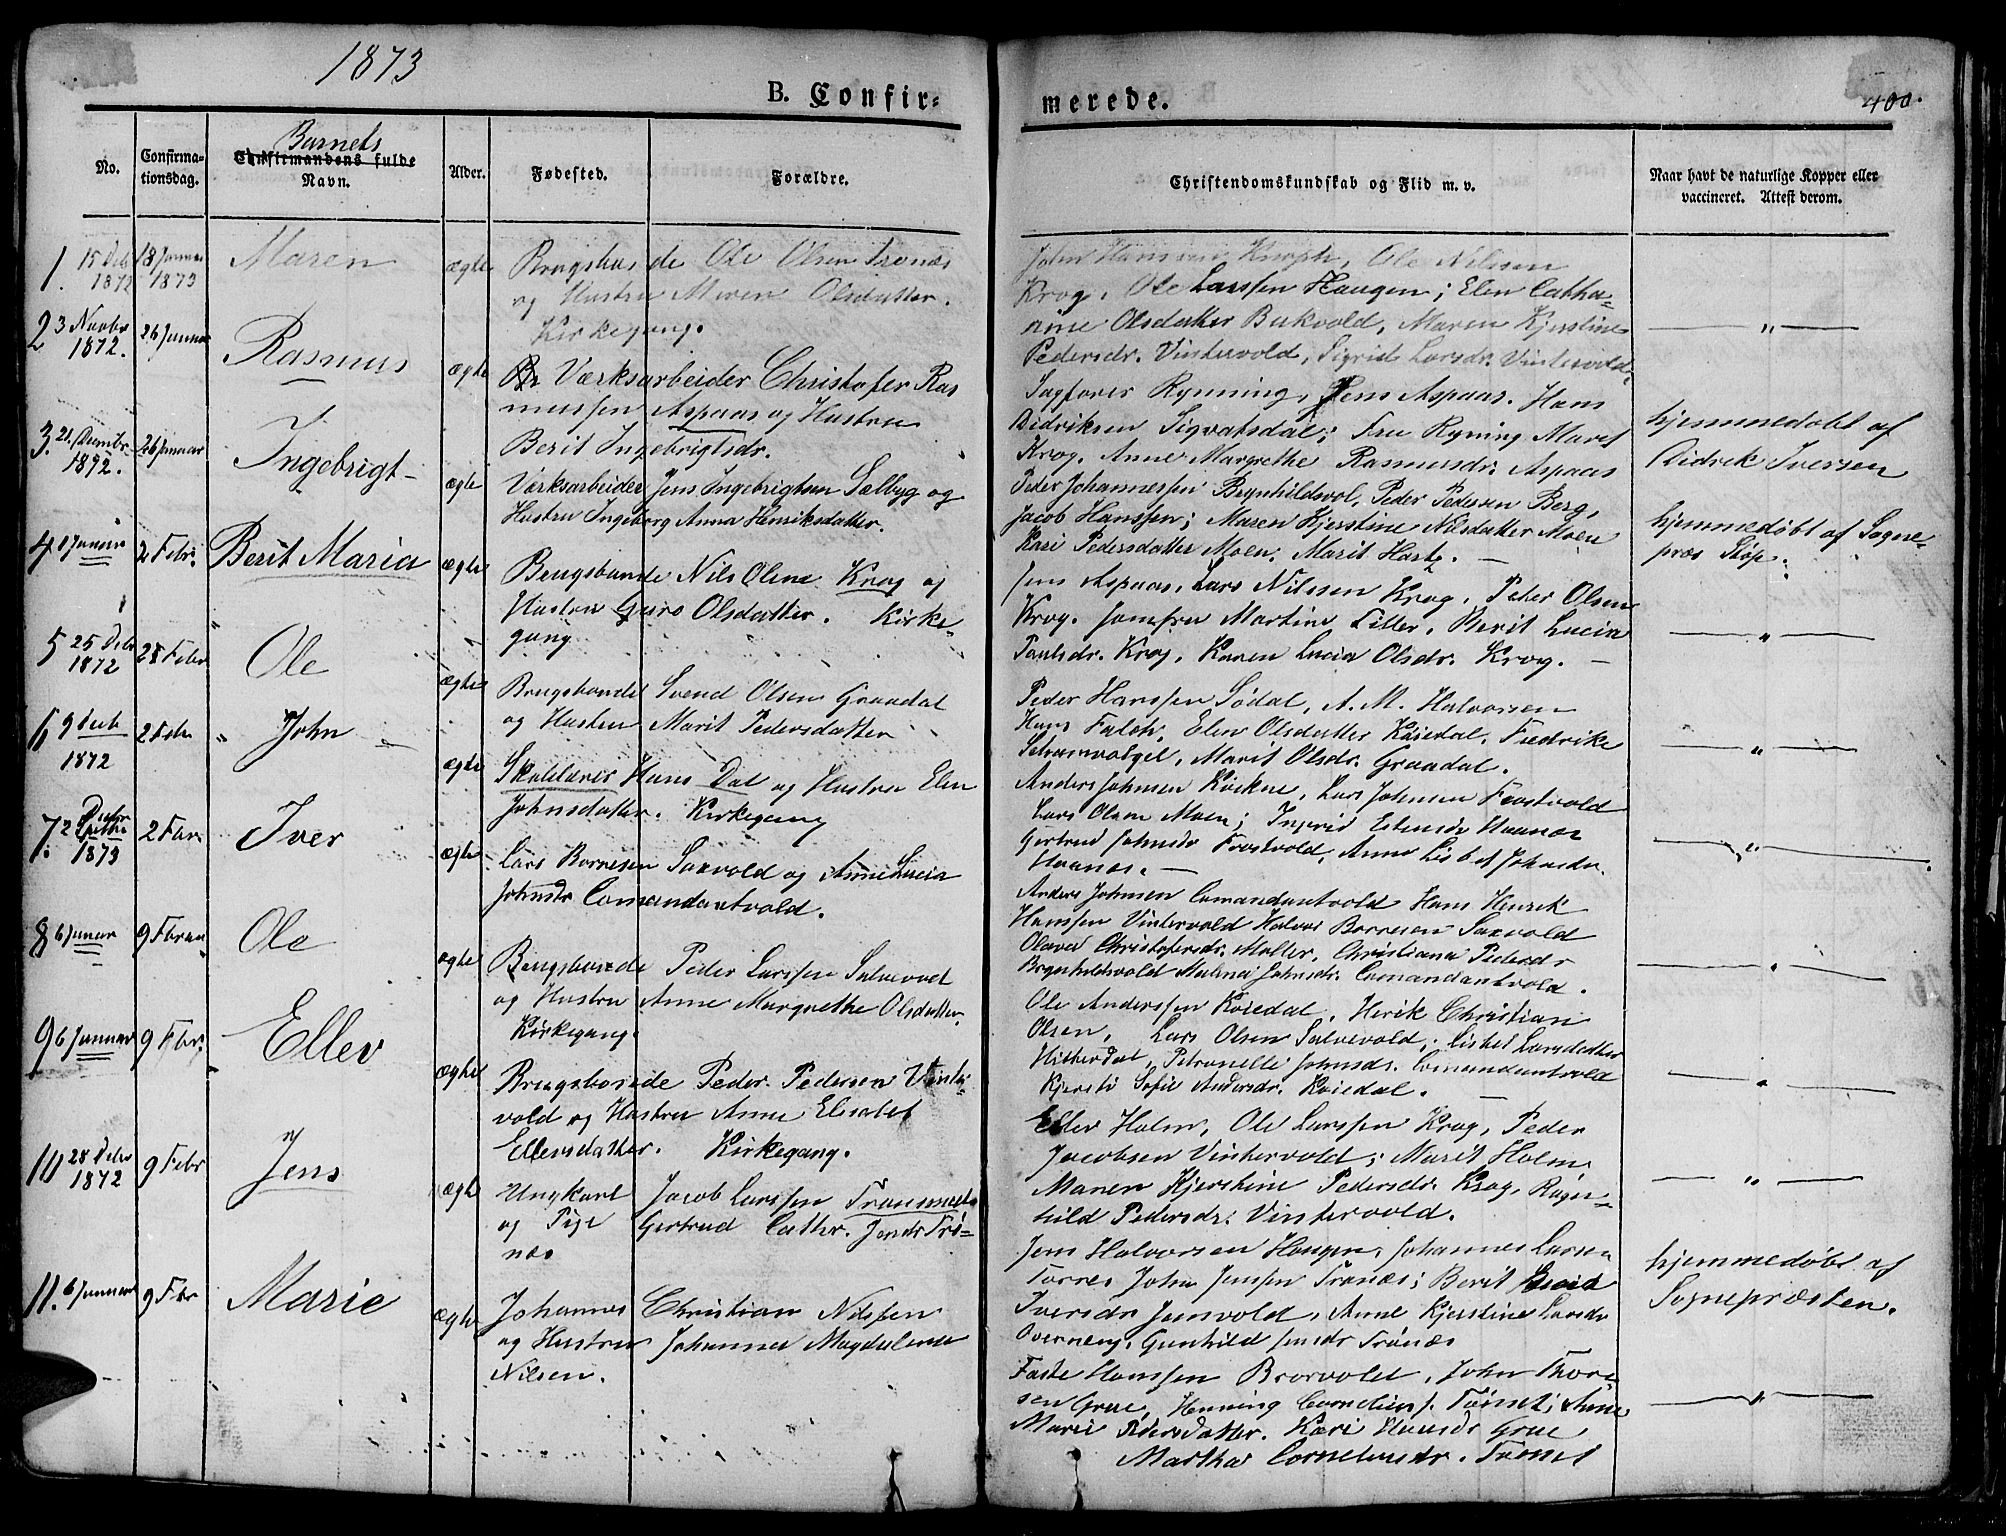 1873
B. Confir=
merede.
400.
No.
Confirma-
tionsdag.
Barnets
Confirmandens fulde
Navn.
Alder.
Fødested.
Forældre.
Christendomskundskab og Flid m. v.
Naar havt de naturlige Kopper eller
vaccineret. Attest derom.
1. 15 Debr 1872
18 Januar 1873
Maren
ægte
Brugsbonde Ole Olsen Trønæs
og Hustru Maren Olsdatter.
Kirkegang.
John Hanssen Knoph, Ole Nilssen
Krog, Ole Larssen Haugen; Elen Catha-
rine Olsdatter Bukvold, Maren Kjerstine
Pedersdr. Vintervold, Sigrid Larsdr. Vintervold.
2 3 Novbr 1872.
26 Januar
Rasmus
ægte
Værksarbeider Christofer Ras
mussen Aspaas og Hustru
Berit Ingebrigtsdr.
Sagfører Rynning, Jens Aspaas. Hans
Didriksen Sigvatsdal; Fru Ryning Marit
Krog, Anne Margrethe Rasmusdr. Aspaas
— " —
3. 21 Decembr. 1872.
26 Januar
Ingebrigt
ægte
Værksarbeider Jens Ingebrigtsen Sælbyg og
Hustru Ingeborg Anna Henriksdatter.
Peder Johannessen Brynhildsvol, Peder Pedersen Berg,
Jacob Hanssen; Maren Kjerstine Nilsdatter Moen
Kari Pedersdatter Moen, Marit Hartz. —
hjemmedøbt af
Didrik Iversen
4 1 Januar
2 Febr.
Berit Maria
ægte
Brugsbonde Nils Olsen Krog og
Hustru Guro Olsdatter. Kirke-
gang
Jens Aspaas, Lars Nilssen Krog, Peter Olsen
Krog. Jomfru Martine Tiller, Berit Lucia
Paulsdr. Krog, Karen Lucia Olsdr. Krog. —
hjemmedøbt af Sogne-
præs
5 25 Debr 1872
Febr
Ole
ægte
Brugsbonde Svend Olsen Graadal
og Hustru Marit Pedersdatter
Peder Hanssen Sødal, A. M. Halvorsen
Hans Falch, Elen Olsdatter Køiedal, Fredrike
Marit Olsdr. Graadal.
— " —
6 9 1872
2 Febr
John
ægte
Skolelærer Hans Dal og Hustru Elen
Johnsdatter. Kirkegang
Anders Johnsen Lars Johnsen Frostvold
Lars Olsen Moen; Ingrid
Gertrud Johnsdr Frostvold, Anne Lisbet Johnsdr.
— " —
7. 2 1873
2 Febr
Iver
ægte
Lars Borresen Saxvold og Anne Lucia
Johnsdr Comandantvold.
Anders Johnsen Comandantvold Hans Henrik
Hanssen Vintervold Halvor Borresen Saxvold
Olava Christofersdr. Møller, Christiana Pedersdr
Brynhildsvold Malena Johnsdr. Comandantvold.
— " —
8 6 Januar
9 Februar
Ole
ægte
Brugsbonde Peder Larssen
og Hustru Anne Margrethe Olsdatter.
Kirkegang.
Ole Anderssen Køiedal, Henrik Christian
Olsen, Lars Olsen Lisbet Larsdatter
Petronelle Johnsdr. Comandantvold
Kjersti Sofie Andersdr. Køiedal. —
— " —
9 6 Januar
9 Febr.
Ellev
ægte
Brugsbonde Peder Pedersen Vinter-
vold og Hustru Anne Elisabet
Ellevsdatter. Kirkegang.
Ellev Holm, Ole Larssen Krog, Peder
Jacobsen Vintervold; Marit Holm
Maren Kjerstine Pedersdr. Krog, Ragn-
hild Pedersdr. Vintervold.
— " —
10 28 Debr 1872
9 Febr
Jens
ægte
Ungkarl Jacob Larssen
og Pige Gertrud Cathr. Jensdr Trø-
næs
Jens Halvorsen Haugen, Johannes
Torres John Jensen Trønæs; Berit
Iversdr Jensvold, Anne Kjerstine Larsdr
Gunhild Jensdr Trønæs
— " —
11. 6 Januar
9 Febr
Marie
ægte
Johannes Christian Nilssen
og Hustru Johanna Magdalena
Nilsen.
Faste Hanssen Brorvold, John Thor-
sen Grue, Henning Cornelius Tamnes; Anne
Marie Pedersdatter. Kari Hansdr Grue,
Martha Corneliusdr.
hjemmedøbt af
Sognepræsten.
— " —